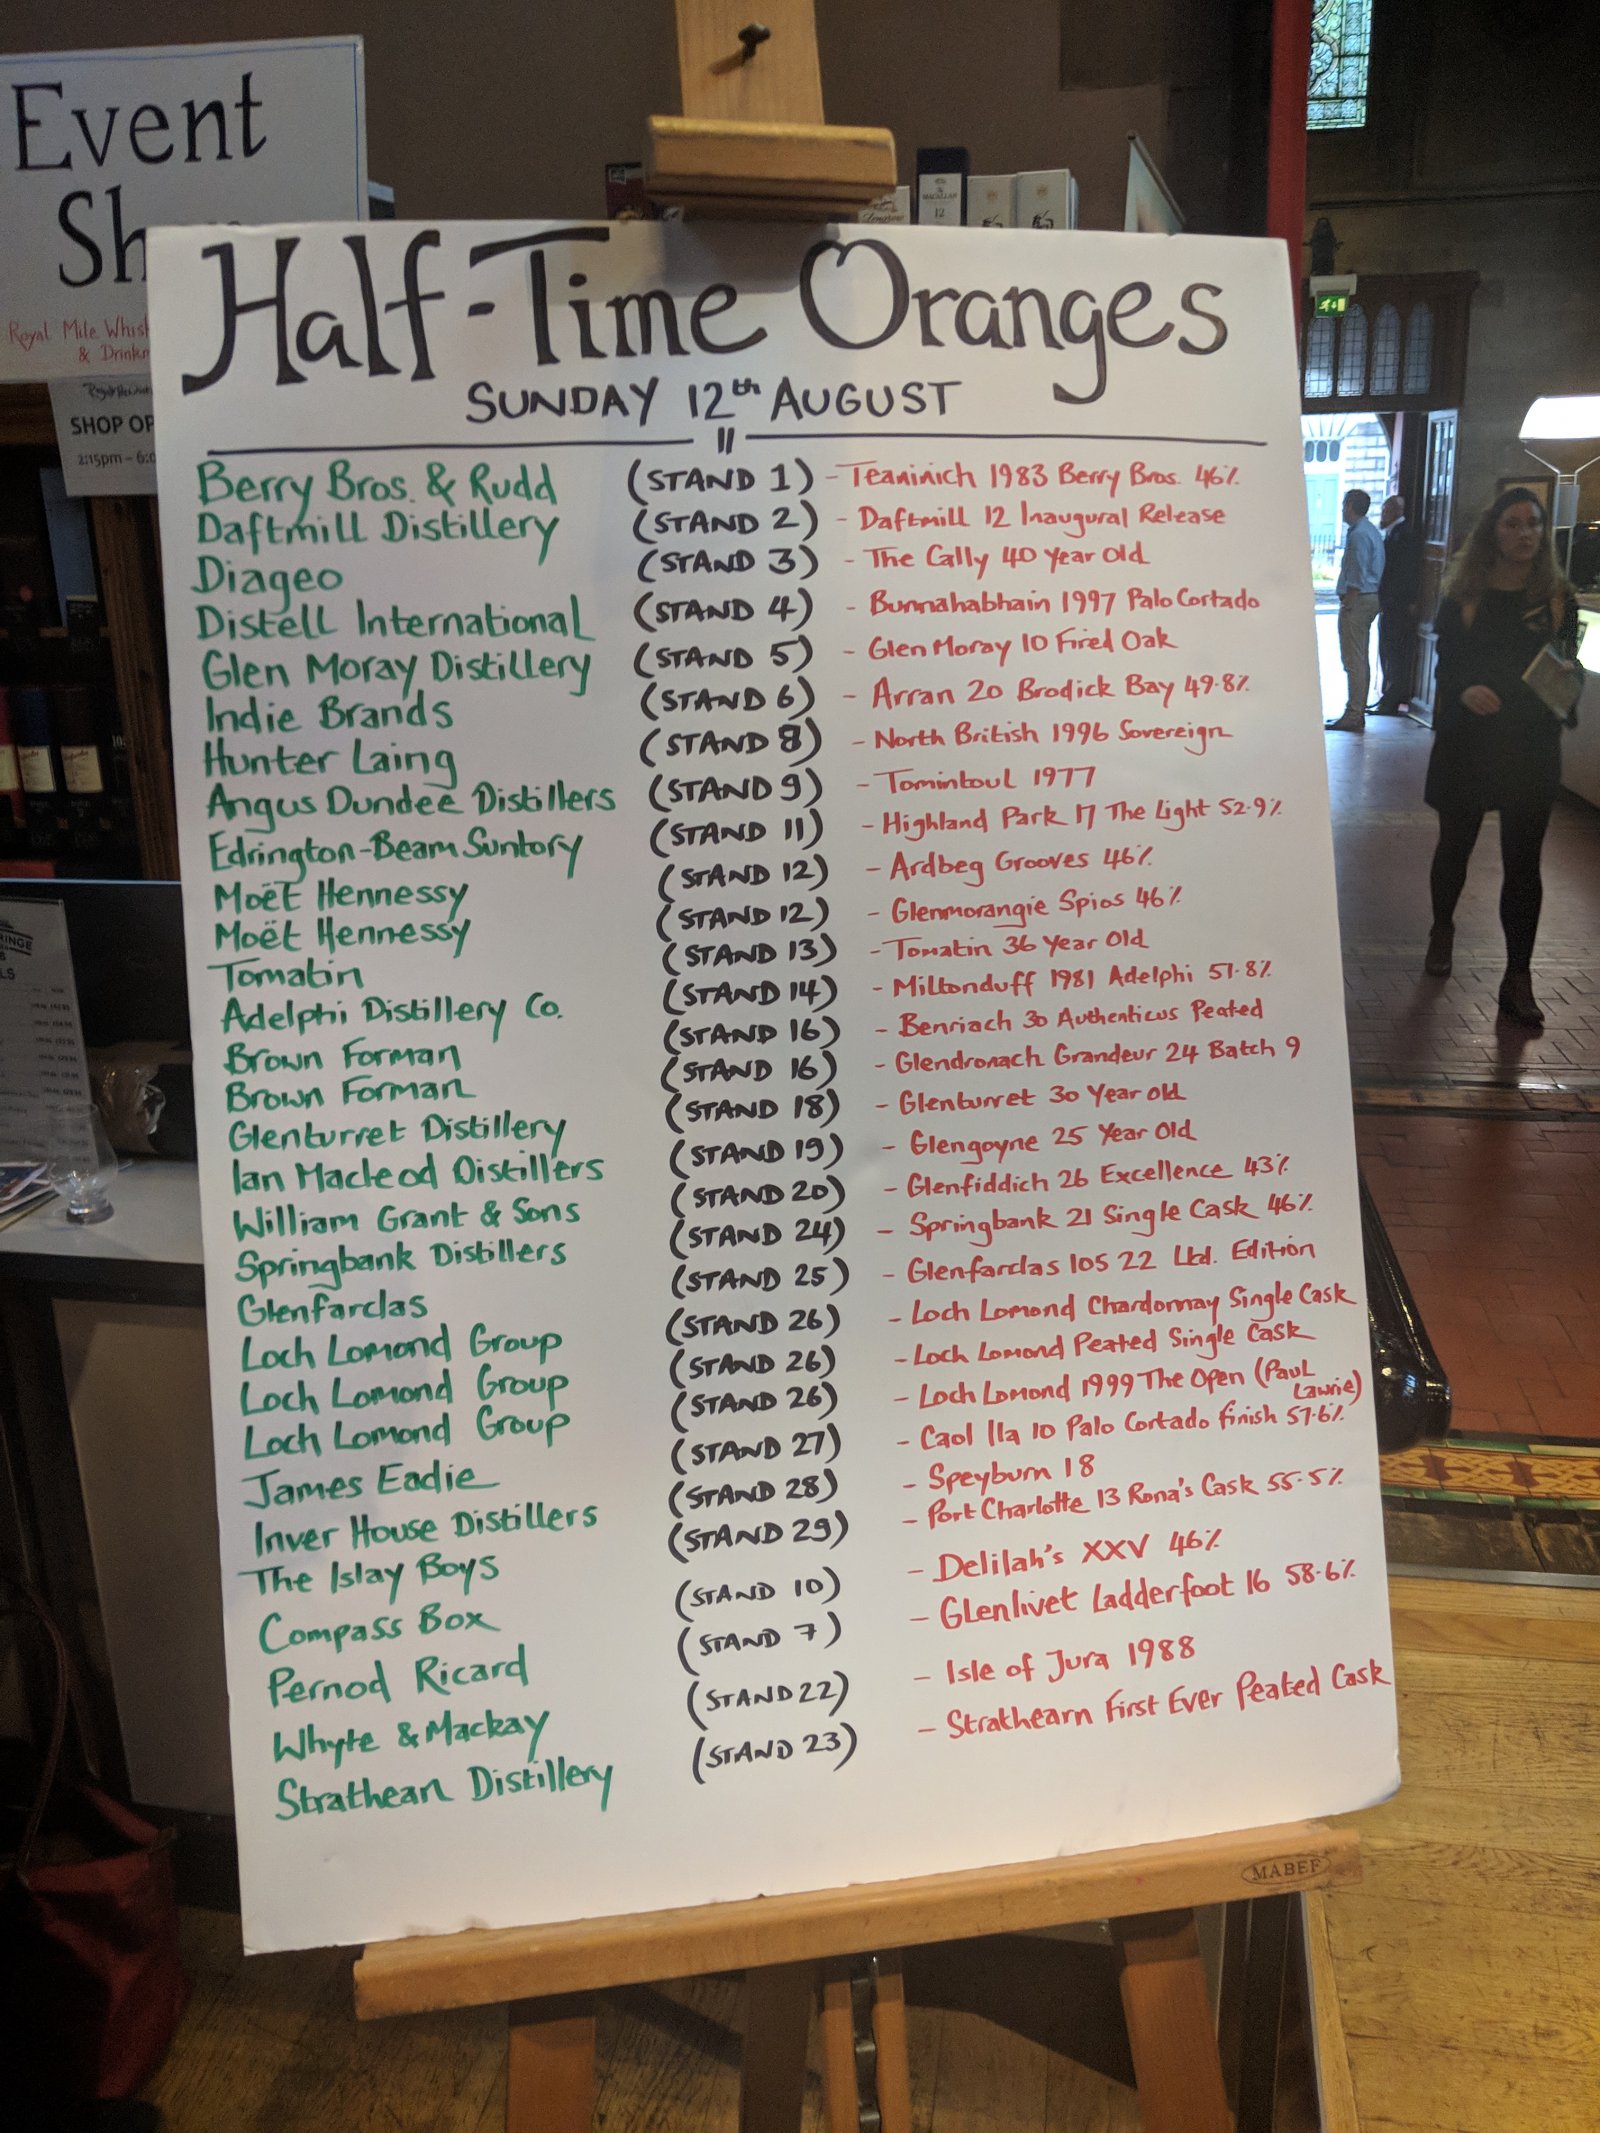 Event
Royal Mile
&
SHOP
2:15pm -
MACALLAN
12
Half-Time Oranges
SUNDAY 12th AUGUST
Berry Bros. & Rudd (STAND 1) - Teaninich 1983 Berry Bros. 46%
Daftmill Distillery (STAND 2) - Daftmill 12 Inaugural Release
Diageo (STAND 3) - The Cally 40 Year Old
Distell International (STAND 4) - Bunnahabhain 1997 Palo Cortado
Glen Moray Distillery (STAND 5) - Glen Moray 10 Fired Oak
Indie Brands (STAND 6) - Arran 20 Brodick Bay 49.8%
Hunter Laing (STAND 8) - North British 1996 Sovereign
Angus Dundee Distillers (STAND 9) - Tomintoul 1977
Edrington-Beam Suntory (STAND 11) - Highland Park 17 The Light 52.9%
Moët Hennessy (STAND 12) - Ardbeg Grooves 46%
Moët Hennessy (STAND 12) - Glenmorangie Spios 46%
Tomatin (STAND 13) - Tomatin 36 Year Old
Adelphi Distillery Co. (STAND 14) - Miltonduff 1981 Adelphi 51.8%
Brown Forman (STAND 16) - Benriach 30 Authenticus Peated
Brown Forman (STAND 16) - Glendronach Grandeur 24 Batch 9
Glenturret Distillery (STAND 18) - Glenturret 30 Year Old
Ian Macleod Distillers (STAND 19) - Glengoyne 25 Year Old
William Grant & Sons (STAND 20) - Glenfiddich 26 Excellence 43%
Springbank Distillers (STAND 24) - Springbank 21 Single Cask 46%
Glenfarclas (STAND 25) - Glenfarclas 105 22 Ltd. Edition
Loch Lomond Group (STAND 26) - Loch Lomond Chardonnay Single Cask
Loch Lomond Group (STAND 26) - Loch Lomond Peated Single Cask
Loch Lomond Group (STAND 26) - Loch Lomond 1999 The Open (Paul Lawrie)
James Eadie (STAND 27) - Caol Ila 10 Palo Cortado finish 57.6%
Inver House Distillers (STAND 28) - Speyburn 18
The Islay Boys (STAND 29) - Port Charlotte 13 Rona's Cask 55.5%
Compass Box (STAND 10) - Delilah's XXV 46%
Pernod Ricard (STAND 7) - Glenlivet Ladderfoot 16 58.6%
Whyte & Mackay (STAND 22) - Isle of Jura 1988
Strathearn Distillery (STAND 23) - Strathearn First Ever Peated Cask
MABEF